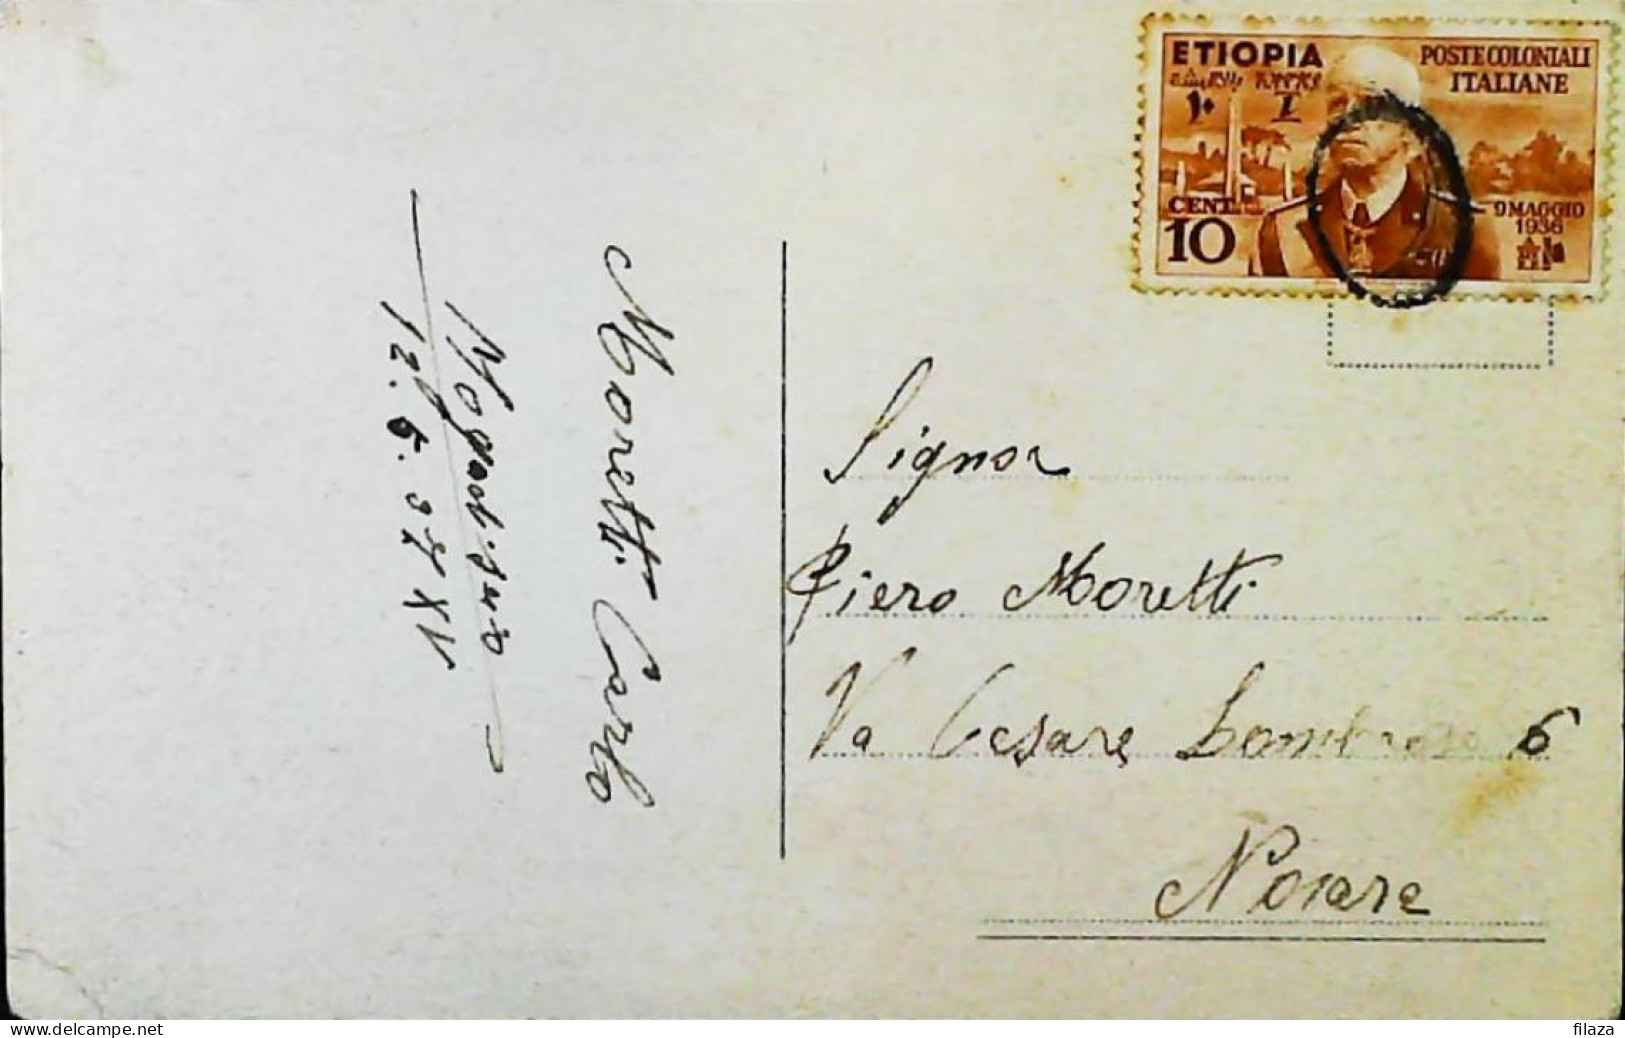 ETIOPIA
POSTE COLONIALI
ITALIANE
CENT.
10
9 MAGGIO
1936
Moretti Carlo
Mogadiscio
12.5.37 XV
Signor
Piero Moretti
Va Cesare Lombroso 6
Novara
www.delcampe.net
filaza